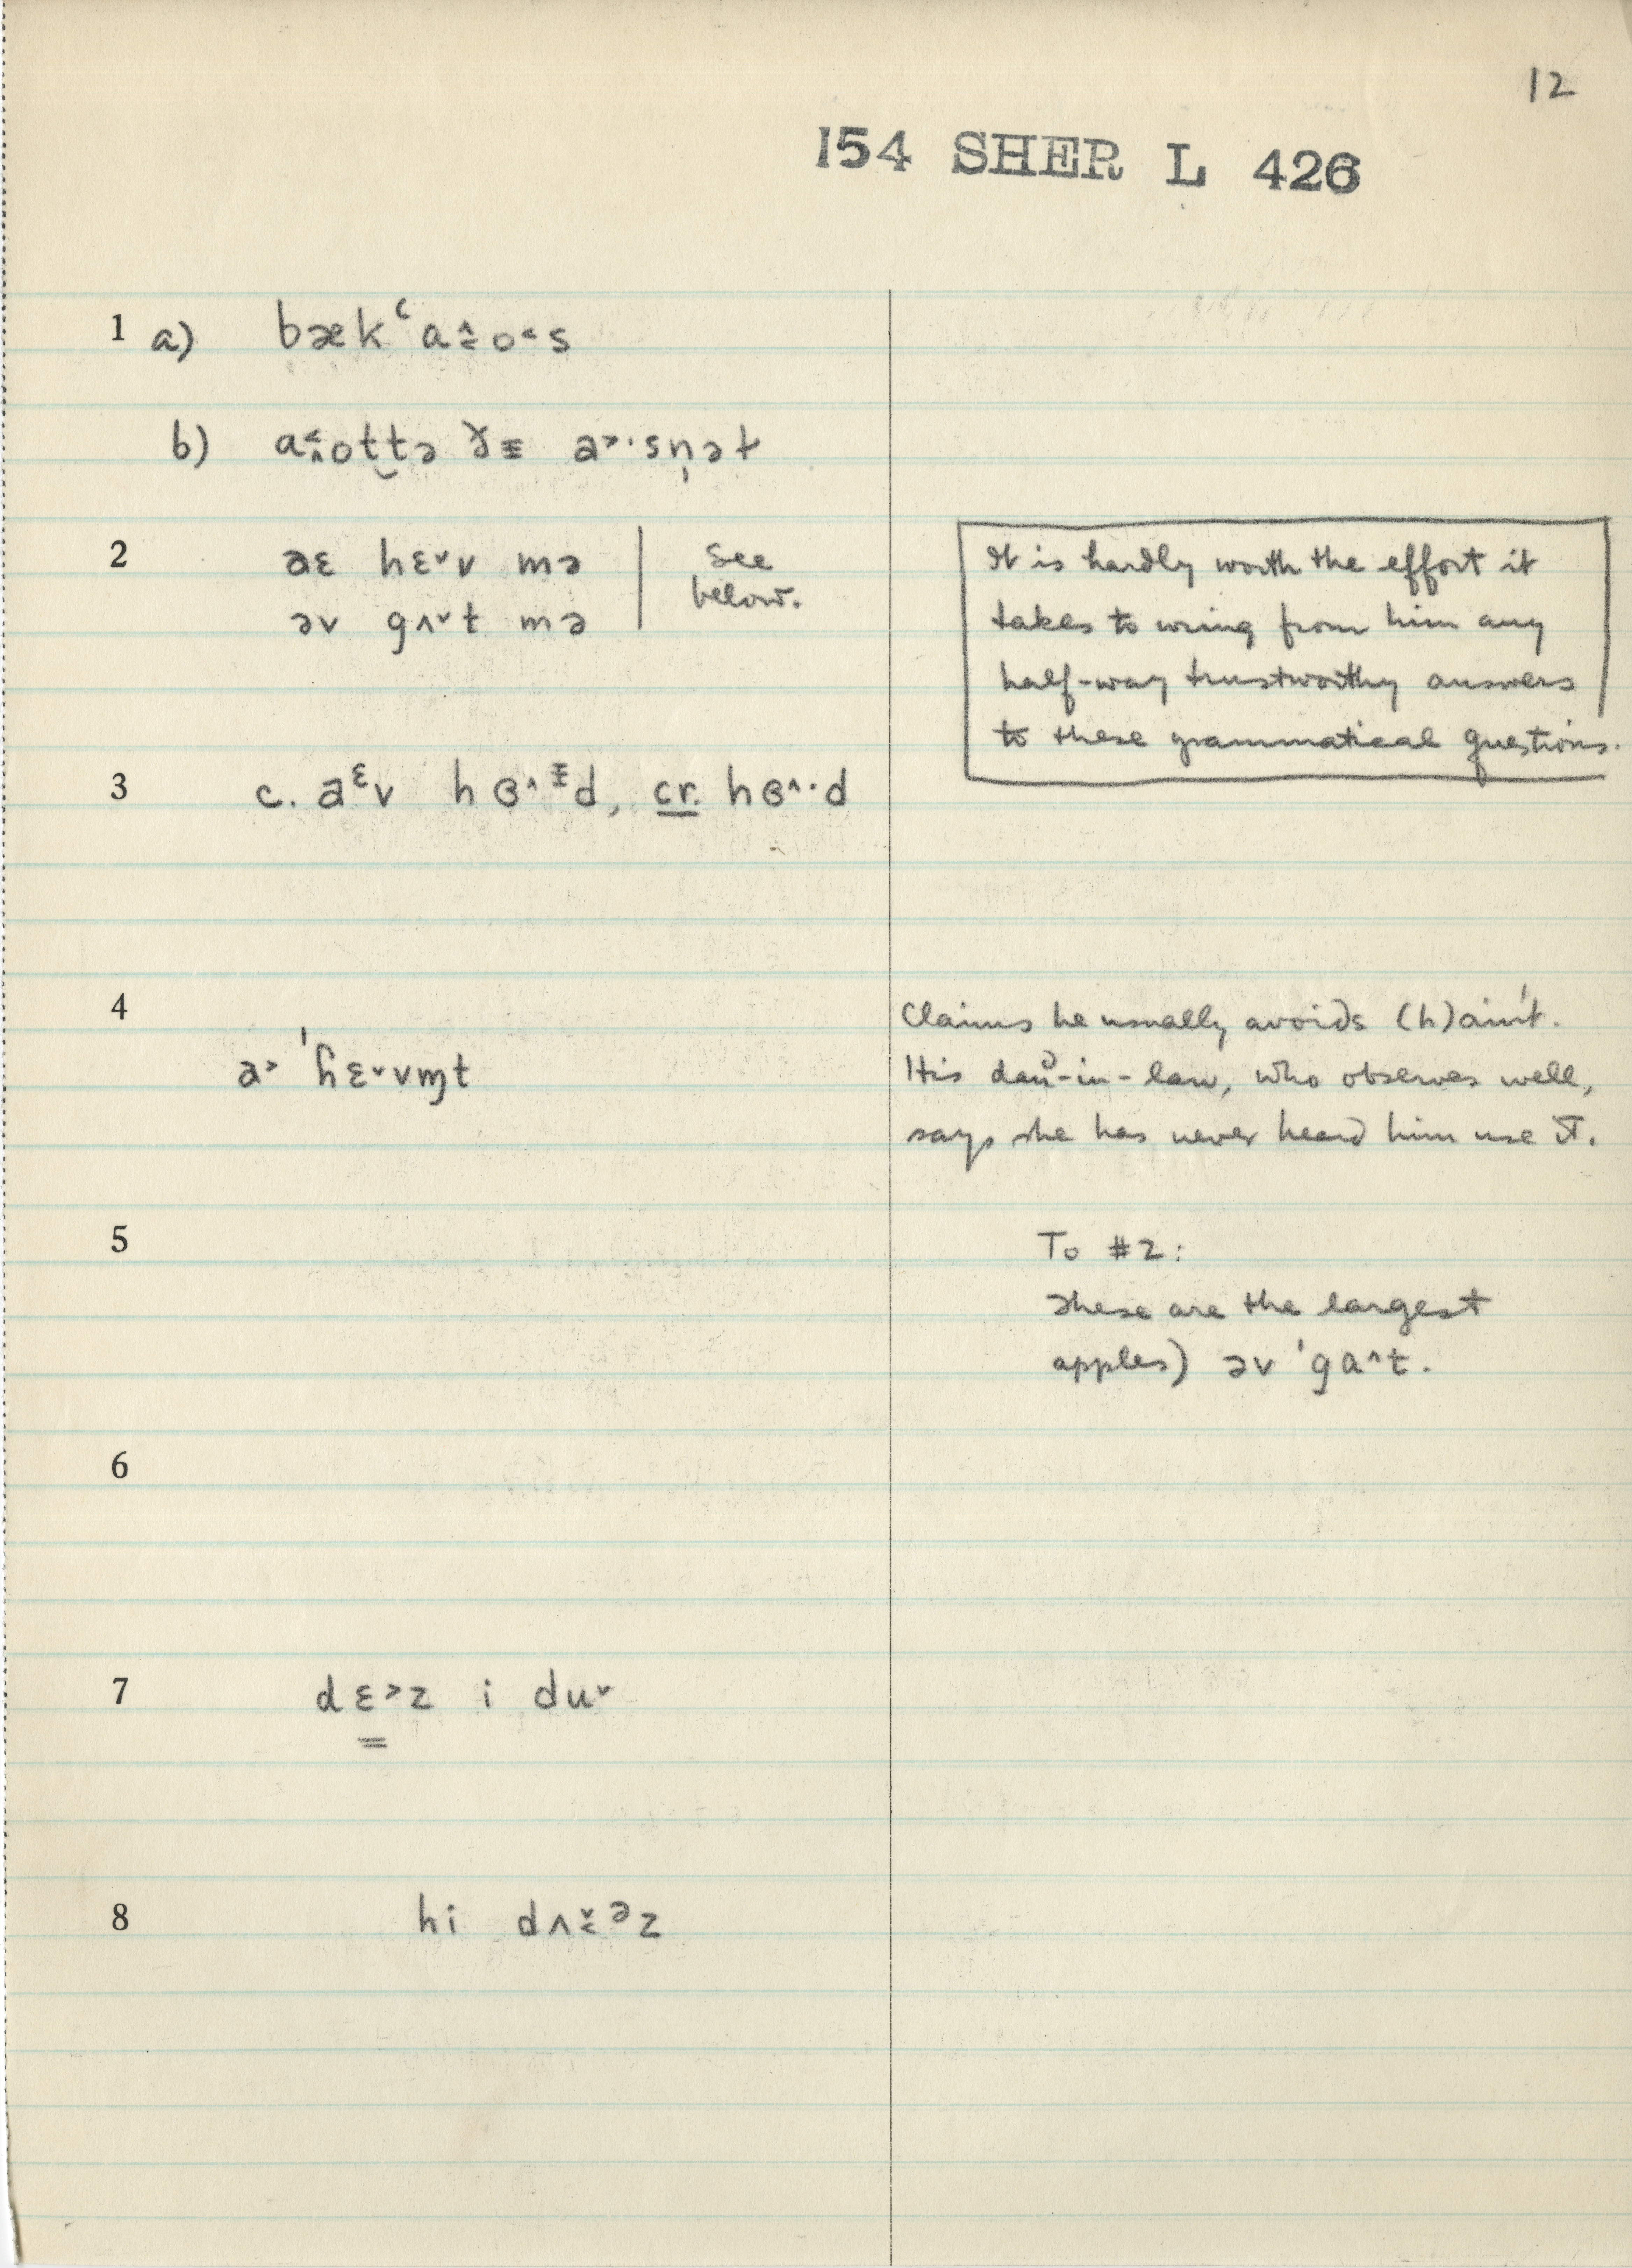 12
154 SHER L 426
1 a) bækʻa≙o˂s
b) a˂̭ott̮ə ɤᵻ a˃·sn̩ət
2 aɛ hɛ˅v mə | See
əv gʌ˅t mə | below.
It is hardly worth the effort it
takes to wring from him any
half-way trustworthy answers
to these grammatical questions.
3 c. aᵋv hɞ^ᵻd, cr. hɞ^·d
4
a˃ ˈhɛ˅vm̩t
Claims he usually avoids (h)ain't.
His dau-in-law, who observes well,
says she has never heard him use it.
5
To #2:
These are the largest
apples) əv ˈgɑ^t.
6
7 dɛ˃z i du˅
8 hi dʌ˅̬ᵊz